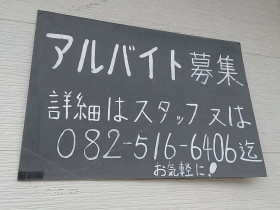 アルバイト募集
詳細はスタッフ又は
082-516-6406迄
お気軽に!